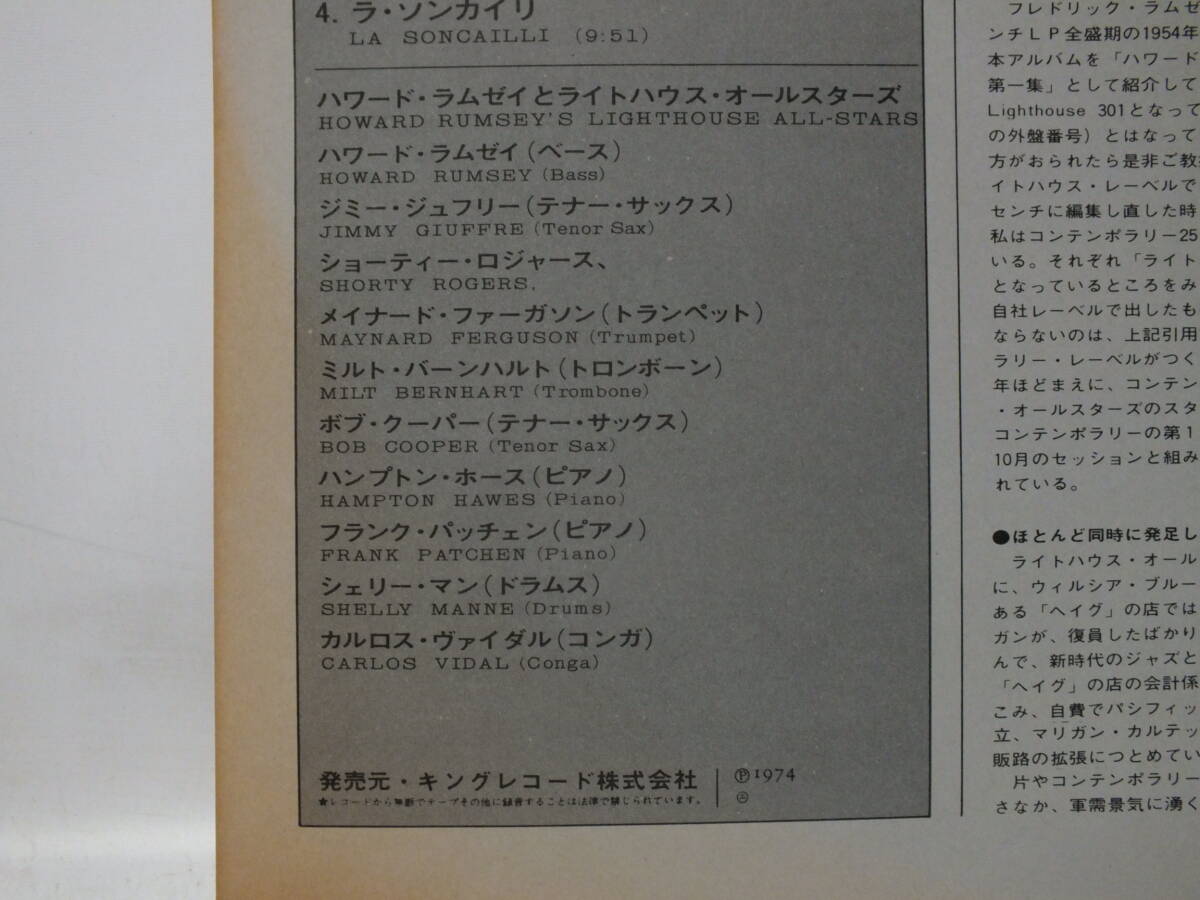 4. ラ・ソンカイリ
LA SONCAILLI (9:51)
ハワード・ラムゼイとライトハウス・オールスターズ
HOWARD RUMSEY'S LIGHTHOUSE ALL-STARS
ハワード・ラムゼイ(ベース)
HOWARD RUMSEY (Bass)
ジミー・ジュフリー(テナー・サックス)
JIMMY GIUFFRE (Tenor Sax)
ショーティー・ロジャース、
SHORTY ROGERS,
メイナード・ファーガソン(トランペット)
MAYNARD FERGUSON (Trumpet)
ミルト・バーンハルト(トロンボーン)
MILT BERNHART (Trombone)
ボブ・クーパー(テナー・サックス)
BOB COOPER (Tenor Sax)
ハンプトン・ホース(ピアノ)
HAMPTON HAWES (Piano)
フランク・パッチェン(ピアノ)
FRANK PATCHEN (Piano)
シェリー・マン(ドラムス)
SHELLY MANNE (Drums)
カルロス・ヴァイダル(コンガ)
CARLOS VIDAL (Conga)
発売元・キングレコード株式会社
★レコードから無断でテープその他に録音することは法律で禁じられています。
Ⓟ1974
フレドリック・ラムゼ
ンチLP全盛期の1954年
本アルバムを「ハワード
第一集」として紹介して
Lighthouse 301となって
の外盤番号)とはなって
方がおられたら是非ご教
イトハウス・レーベルで
センチに編集し直した時
私はコンテンポラリー25
いる。それぞれ「ライト
となっているところをみ
自社レーベルで出したも
ならないのは、上記引用
ラリー・レーベルがつく
年ほどまえに、コンテン
・オールスターズのスタ
コンテンポラリーの第1
10月のセッションと組み
れている。
●ほとんど同時に発足し
ライトハウス・オール
に、ウィルシア・ブルー
ある「ヘイグ」の店では
ガンが、復員したばかり
んで、新時代のジャズと
「ヘイグ」の店の会計係
こみ、自費でパシフィッ
立、マリガン・カルテッ
販路の拡張につとめてい
片やコンテンポラリー
さなか、軍需景気に湧く